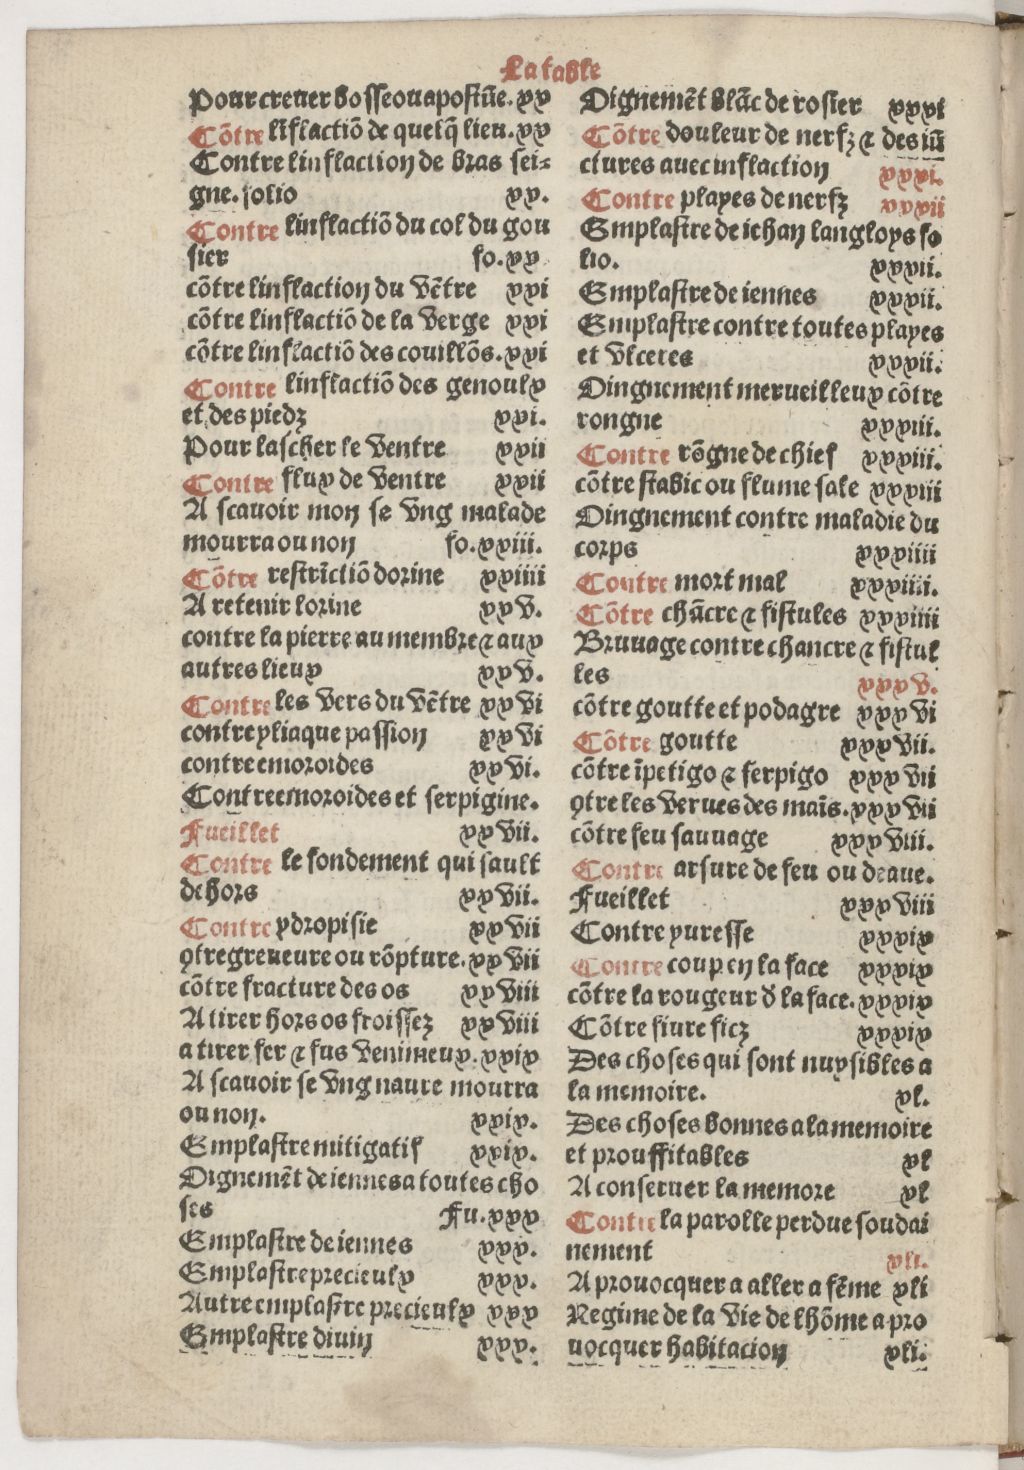 La table
Pour creuer bosse ou apostūe. xx
Cōtre līflactiō de quelq̄ lieu. xx
Contre linflaction de bras sei-
gne. folio xx.
Contre linflactiō du col du gou
sier fo. xx
cōtre linflaction du vētre xxi
cōtre linflactiō de la verge xxi
cōtre linflactiō des couillōs. xxi
Contre linflactiō des genoulx
et des piedz xxi.
Pour lascher le ventre xxii
Contre flux de ventre xxii
A scauoir mon se vng malade
mourra ou non fo. xxiii.
Cōtre restrīctiō dorine xxiiii
A retenir lorine xxv.
contre la pierre au membre ⁊ aux
autres lieux xxv.
Contre les vers du vētre xxvi
contre yliaque passion xxvi
contre emoroides xxvi.
Contre emoroides et serpigine.
Fueillet xxvii.
Contre le fondement qui sault
dehors xxvii.
Contre ydropisie xxvii
ꝯtre greueure ou rōpture. xxvii
cōtre fracture des os xxviii
A tirer hors os froissez xxviii
a tirer fer ⁊ fus venimeux. xxix
A scauoir se vng naure mourra
ou non. xxix.
Emplastre mitigatif xxix.
Oignemēt de iennes a toutes cho
ses Fu. xxx
Emplastre de iennes xxx.
Emplastre precieulx xxx.
Autre emplastre precieulx xxx
Emplastre diuin xxx.
Oignemēt blāc de rosier xxxi
Cōtre douleur de nerfz ⁊ des iū
ctures auec inflaction xxxi.
Contre playes de nerfz xxxii
Emplastre de iehan langloys fo
lio. xxxii.
Emplastre de iennes xxxii.
Emplastre contre toutes playes
et vlceres xxxii.
Oingnement merueilleux cōtre
rongne xxxiii.
Contre rōgne de chief xxxiii.
cōtre stabic ou flume sale xxxiii
Oingnement contre maladie du
corps xxxiiii
Contre mort mal xxxiiii.
Cōtre chācre ⁊ fistules xxxiiii
Bruuage contre chancre ⁊ fistul
les xxxv.
cōtre goutte et podagre xxxvi
Cōtre goutte xxxvii.
cōtre īpetigo ⁊ serpigo xxxvii
ꝯtre les verues des maīs. xxxvii
cōtre feu sauuage xxxviii.
Contre arsure de feu ou deaue.
Fueillet xxxviii
Contre yuresse xxxix
Contre coup en la face xxxix
cōtre la rougeur d̄ la face. xxxix
Cōtre fiure ficz xxxix
Des choses qui sont nuysibles a
la memoire. xl.
Des choses bonnes a la memoire
et prouffitables xl
A conseruer la memore xl
Contre la parolle perdue soudai
nement xli.
A prouocquer a aller a fēme xli
Regime de la vie de lhōme a pro
uocquer habitacion xli.